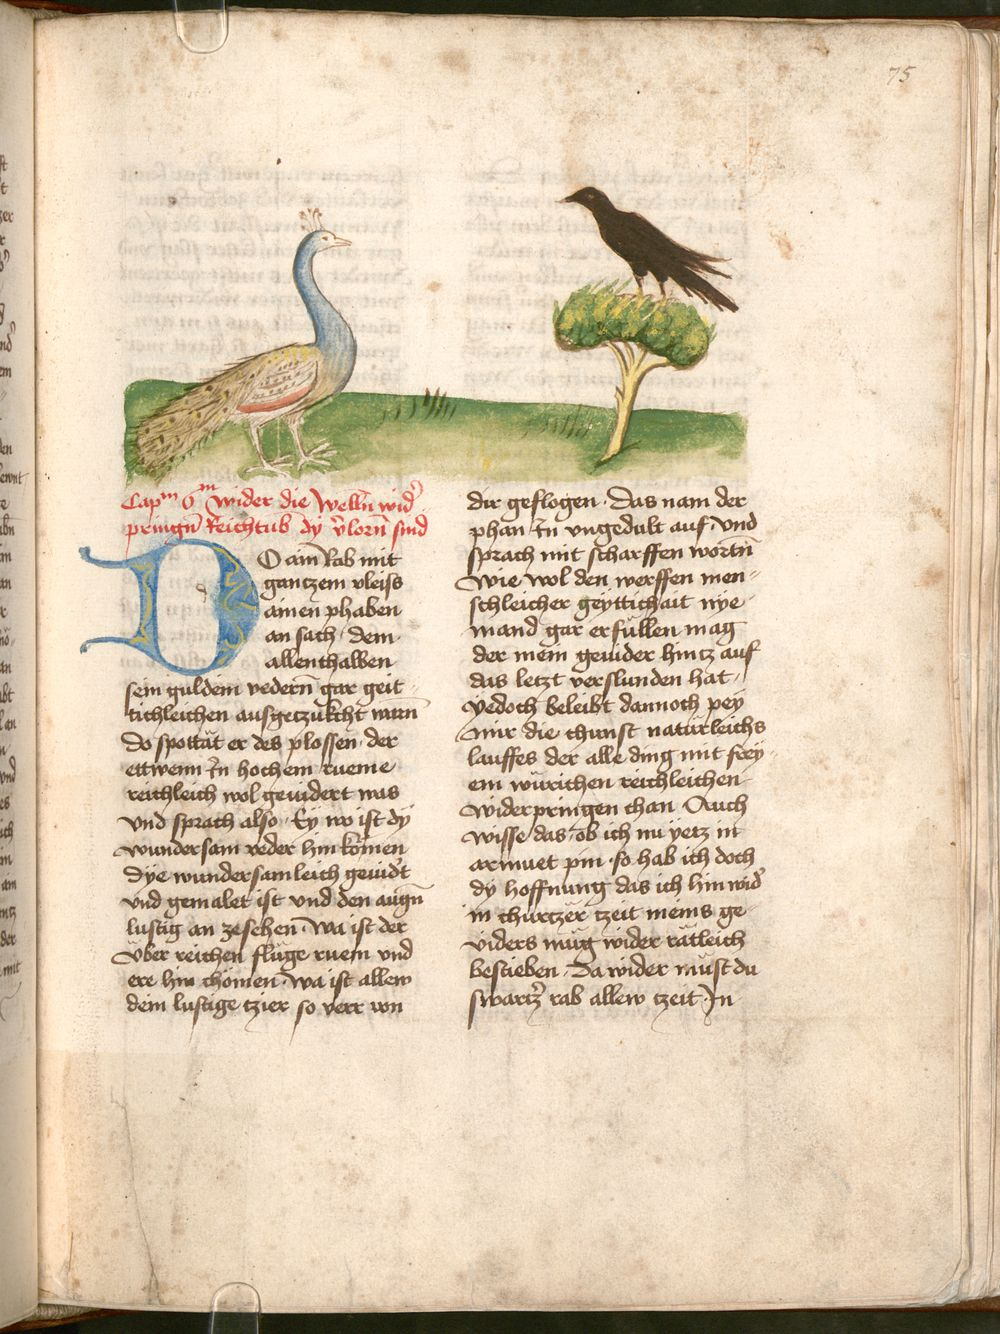 75
Capm 6m wider die wellñ wid'
pringñ Reichtub dy v'lorñ sind
Do ain Rab mit
gantzem vleiss
ainen phaben
an sach · dem
allenthalben
sein guldein vedern gar geit
tichleichen ausgetzukcht warn
do spottat er des plossen · der
ettwenn in hochem rueme
reichleich wol geuidert was
vnd sprach also · Ey wo ist dy
wundersam veder hin komen
dye wundersamleich geuid't
vnd gemalet ist vnd den augñ
lustig an zesehen · wa ist der
über reichen fluge ruem vnd
ere hin chömen · wa ist allew
dein lustige tzier so verr von
dir geflogen · Das nam der
phan in vngedult auf vnd
sprach mit scharffen wortñ
wie wol den werffen men-
schleicher geyttichait nye-
mand gar erfüllen mag
der mein geuider hintz auf
das letzt verslunden hat ·
yedoch beleibt dannoch pey
mir die chunst naturleichs
lauffes der alle ding mit frey-
em würichen reichleichen
widerpringen chan Auch
wisse das ob ich nu yetz in
armuet pin · so hab ich doch
dy hoffnung das ich hin wid'
in churtzer tzeit meins ge-
viders müg wider rätleich
bestieben · Da wider must du
swartz' rab allew tzeit in